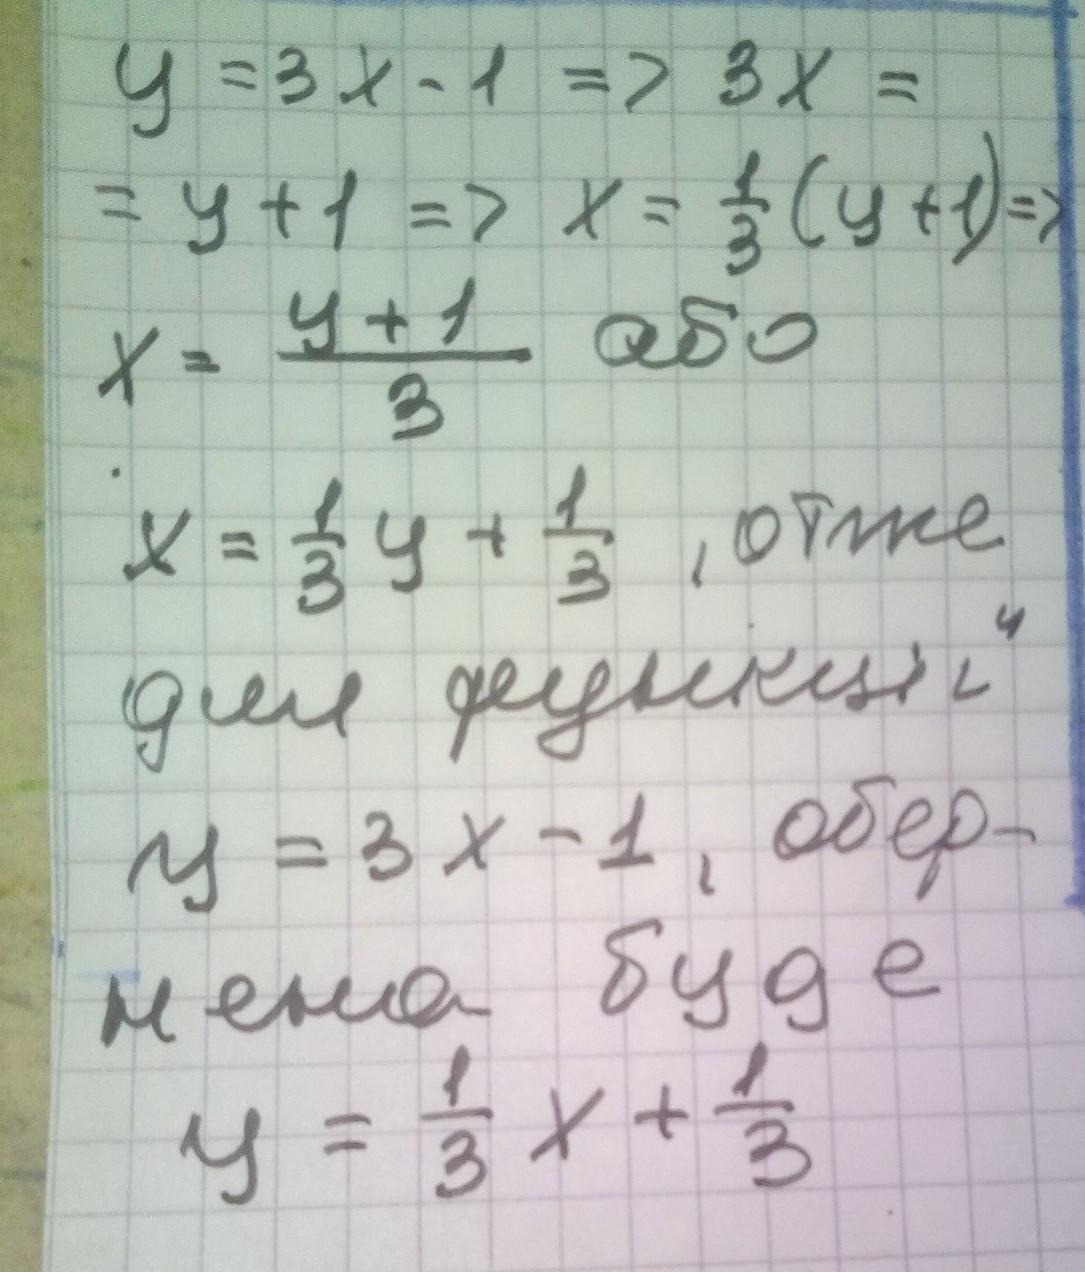 y = 3x - 1 => 3x =
= y + 1 => x = 1/3 (y + 1) =>
x = y + 1 / 3 або
x = 1/3 y + 1/3 , отже
для функції
y = 3x - 1, обер-
нена буде
y = 1/3 x + 1/3